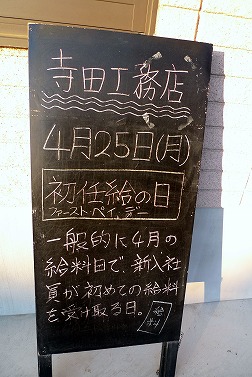 寺田工務店
4月25日(月)
初任給の日
ファースト・ペイ・デー
一般的に4月の
給料日で、新入社
員が初めての給料
を受け取る日。
給料